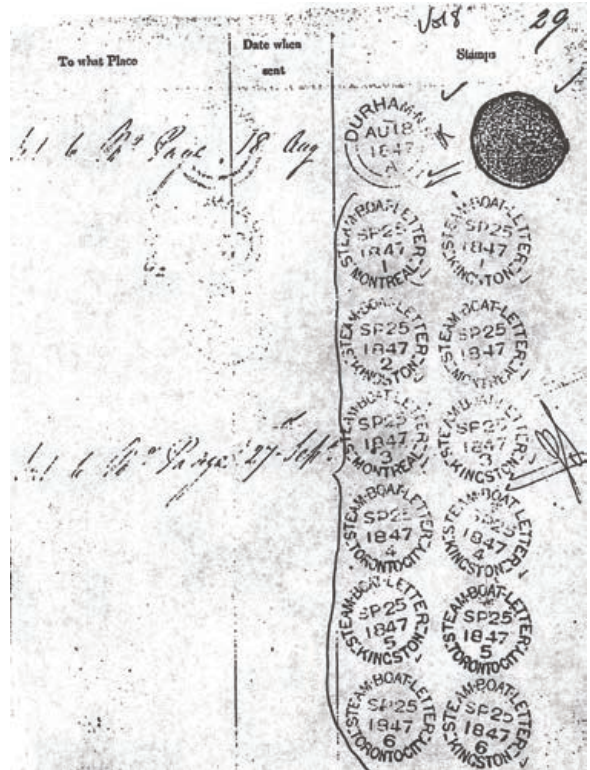 Vol 8 29
To what Place
Date when sent
Stamps
DURHAM
AU 18
1847
to Mr Page 18 Aug
STEAM-BOAT-LETTER
SP 25
1847
1
MONTREAL
STEAM-BOAT-LETTER
SP 25
1847
1
KINGSTON
STEAM-BOAT-LETTER
SP 25
1847
2
KINGSTON
STEAM-BOAT-LETTER
SP 25
1847
MONTREAL
to Mr Page 27 Sept.
STEAM-BOAT-LETTER
SP 25
1847
3
MONTREAL
STEAM-BOAT-LETTER
SP 25
1847
3
KINGSTON
STEAM-BOAT-LETTER
SP 25
1847
4
TORONTO CITY
STEAM-BOAT-LETTER
SP 25
1847
4
KINGSTON
STEAM-BOAT-LETTER
SP 25
1847
5
KINGSTON
STEAM-BOAT-LETTER
SP 25
1847
5
TORONTO CITY
STEAM-BOAT-LETTER
SP 25
1847
6
TORONTO CITY
STEAM-BOAT-LETTER
SP 25
1847
6
KINGSTON